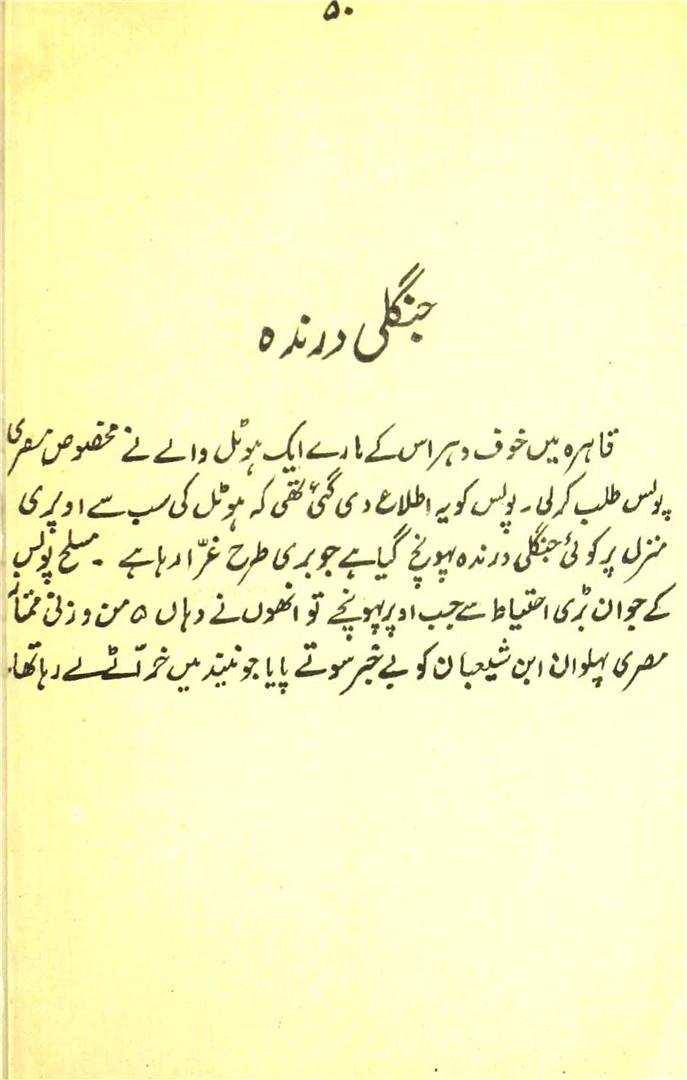 ۵۰
جنگلی درندہ
قاہرہ میں خوف و ہراس کے مارے ایک ہوٹل والے نے مخصوص مصری
پولس طلب کرلی۔ پولس کو یہ اطلاع دی گئی تھی کہ ہوٹل کی سب سے اوپری
منزل پر کوئی جنگلی درندہ پہونچ گیا ہے جو بری طرح غرّا رہا ہے ۔ مسلح پولس
کے جوان بڑی احتیاط سے جب اوپر پہونچے تو انھوں نے وہاں ۵ من وزنی ممتاز
مصری پہلوان ابن شیعبان کو بے خبر سوتے پایا جو نیند میں خرّاٹے لے رہا تھا۔